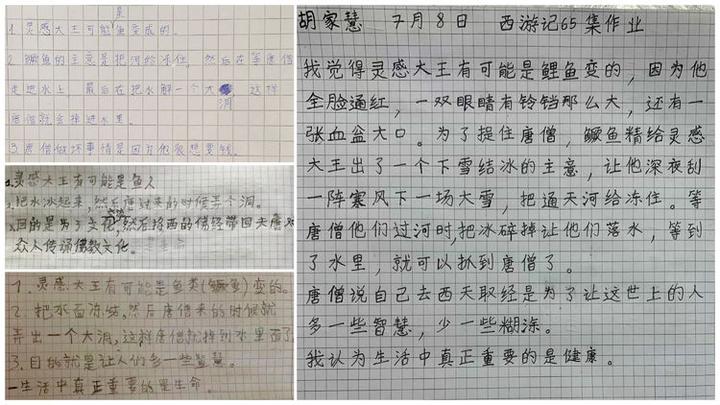 是
1.灵感大王有可能鱼变成的。
2.鳜鱼的主意是把河给冻住，然后在等唐僧
走进水上，最后在把水解一个大洞 这样
唐僧就会掉进水里。
3.唐僧做坏事情是因为他很想要钱。
1.灵感大王有可能是鱼人
2.把水冰起来，然后唐过来的时候弄个洞。
3.目的是为了文化，然后将西的佛经带回大唐对
众人传诵佛教文化。
1.灵感大王有可能是鱼类(鳜鱼)变的。
2.把水面冻结，然后唐僧来的时候就
弄出一个大洞，这样唐僧就掉到水里面了
3.目的就是让人们多一些智慧。
一生活中真正重要的是生命。
胡家慧 7月8日 西游记65集作业
我觉得灵感大王有可能是鲤鱼变的，因为他
全脸通红，一双眼睛有铃铛那么大，还有一
张血盆大口。为了捉住唐僧，鳜鱼精给灵感
大王出了一个下雪结冰的主意，让他深夜刮
一阵寒风下一场大雪，把通天河给冻住。等
唐僧他们过河时，把冰碎掉让他们落水，等到
了水里，就可以抓到唐僧了。
唐僧说自己去西天取经是为了让这世上的人
多一些智慧，少一些糊涂。
我认为生活中真正重要的是健康。